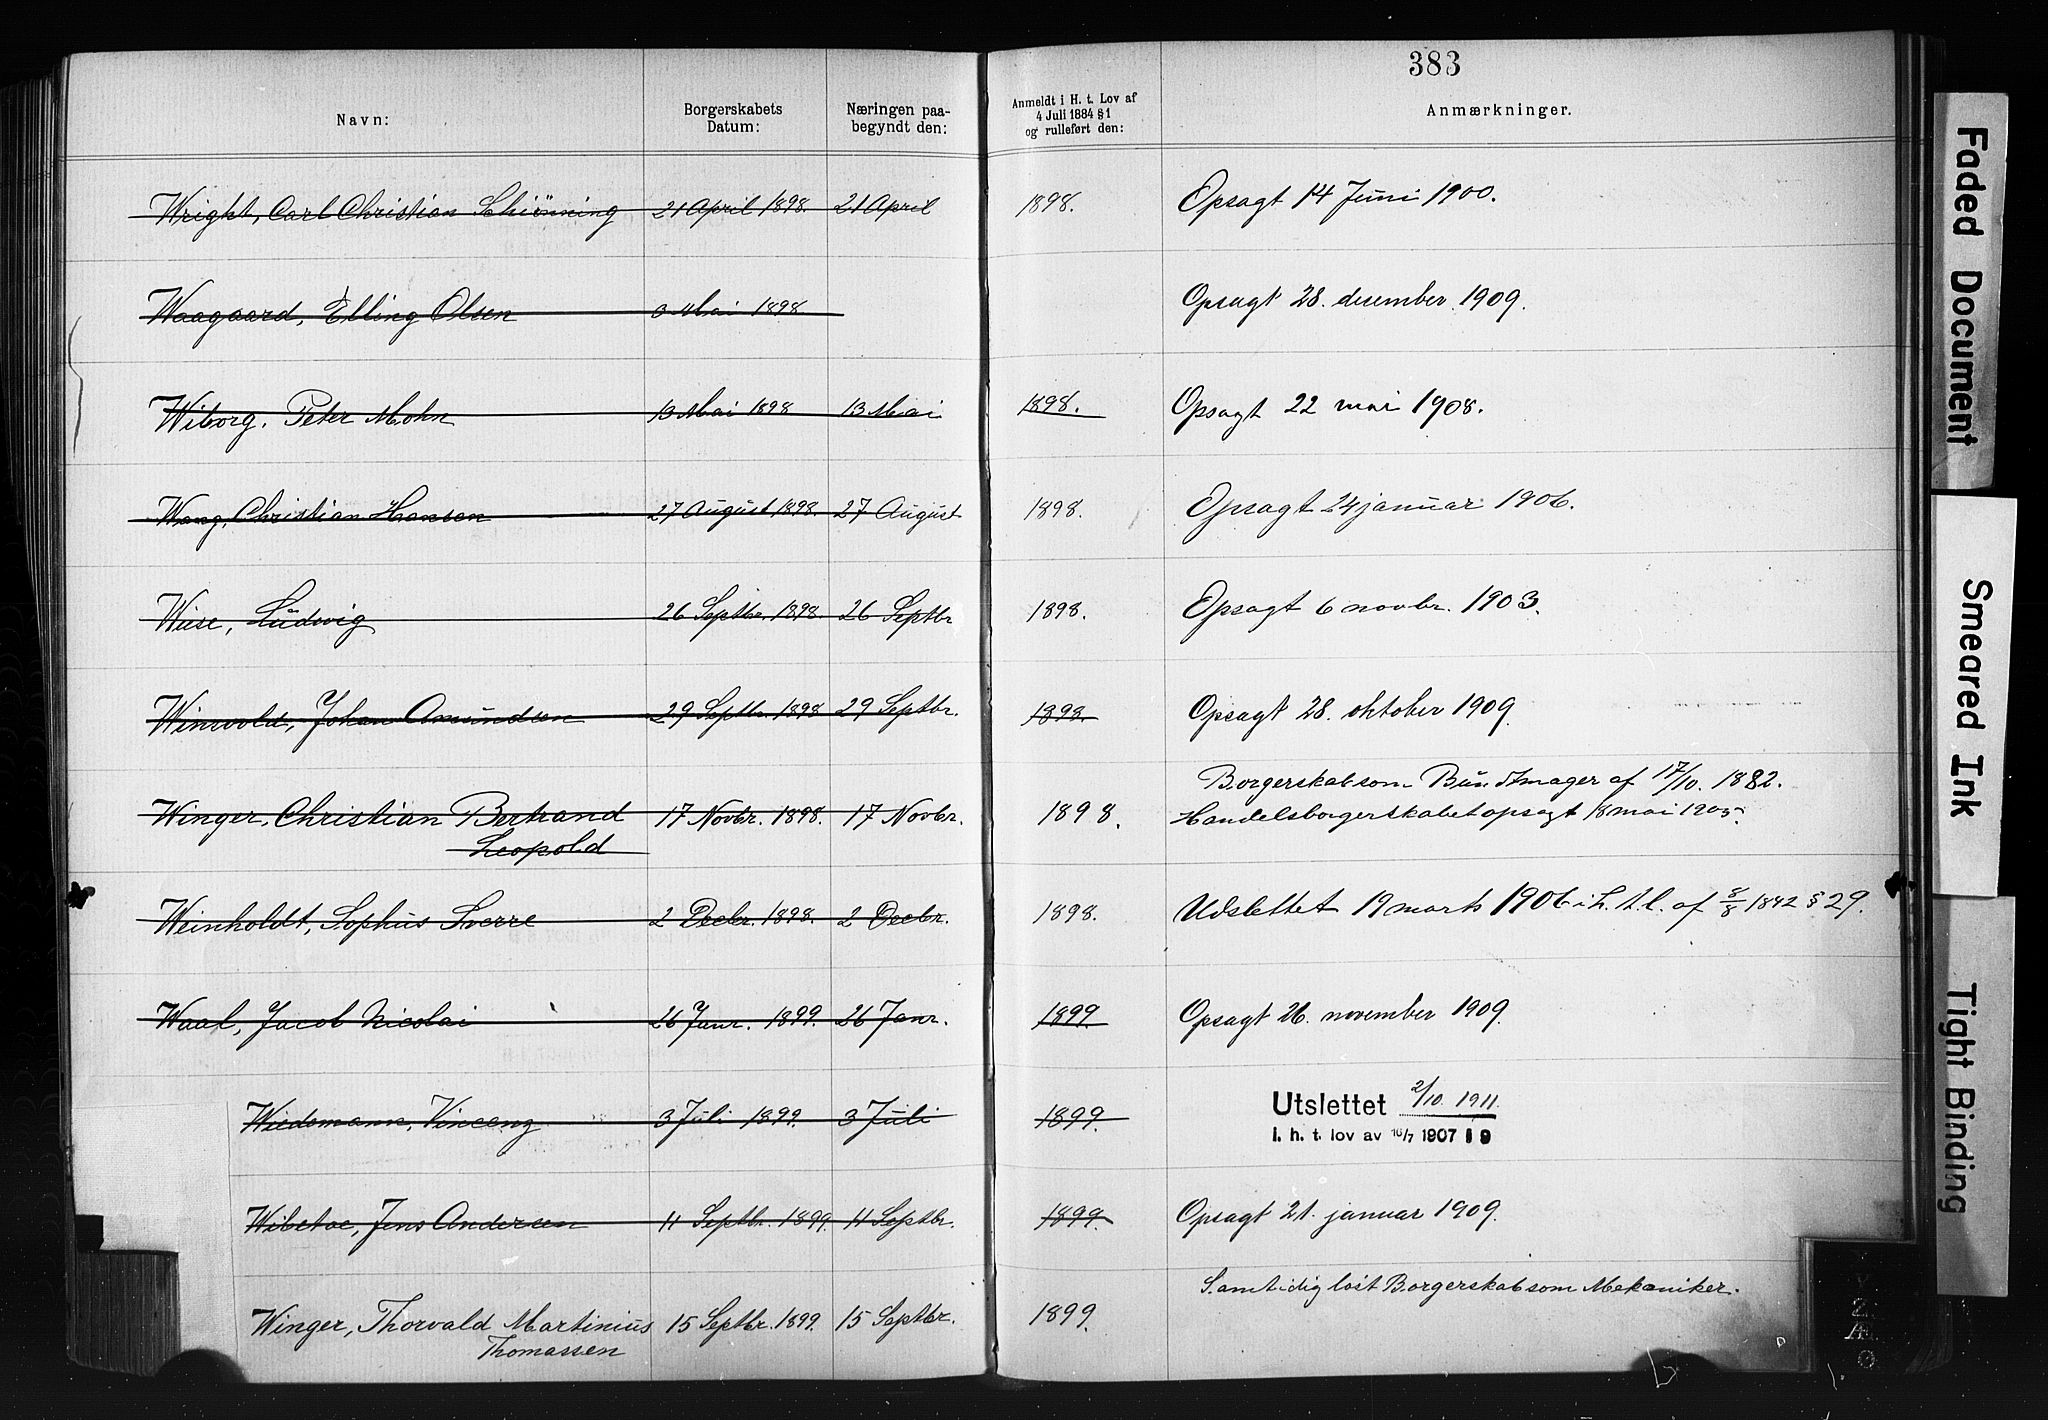 383
Navn:
Borgerskabets Datum:
Næringen paa-begyndt den:
Anmeldt i H. t. Lov af 4 Juli 1884 § 1 og rulleført den:
Anmærkninger.
Wright, Carl Christian Schiönning 21 April 1898. 21 April 1898. Opsagt 14 Juni 1900.
Waagaard, Elling Olsen Mai 1898 Opsagt 28. desember 1909.
Wiborg, Peter Mohn 13 Mai 1898 13 Mai 1898. Opsagt 22 mai 1908.
Wang, Christian Hansen 27 August 1898. 27 August 1898. Opsagt 24 januar 1906.
Wiise, Ludvig 26 Septbr. 1898. 26 Septbr 1898. Opsagt 6 novbr. 1903.
Winsvold, Johan Amundsen 29 Septbr. 1898 29 Septbr. 1898. Opsagt 28. oktober 1909.
Borgerskab som Bundtmager af 17/10. 1882.
Winger, Christian Bertrand 17 Novbr. 1898. 17 Novbr. 1898. Handelsborgerskabet opsagt 18 mai 1905.
Leopold
Weinholdt, Sophus Sverre 2 Decbr. 1898. 2 Decbr. 1898. Udslettet 19 marts 1906 i h. t. l. af 8/8 1842 § 29.
Waal, Jacob Nicolai 26 Janr. 1899. 26 Janr. 1899 Opsagt 26. november 1909.
Wiedemann, Vincenz 3 Juli 1899. 3 Juli 1899. Utslettet 2/10. 1911.
i. h. t. lov av 16/7 1907 § 9
Wibetoe, Jens Andersen 11 Septbr. 1899. 11 Septbr. 1899. Opsagt 21. januar 1909.
Samtidig löst Borgerskab som Mekaniker.
Winger, Thorvald Martinius 15 Septbr. 1899. 15 Septbr. 1899.
Thomassen
Faded Document
Smeared Ink
Tight Binding